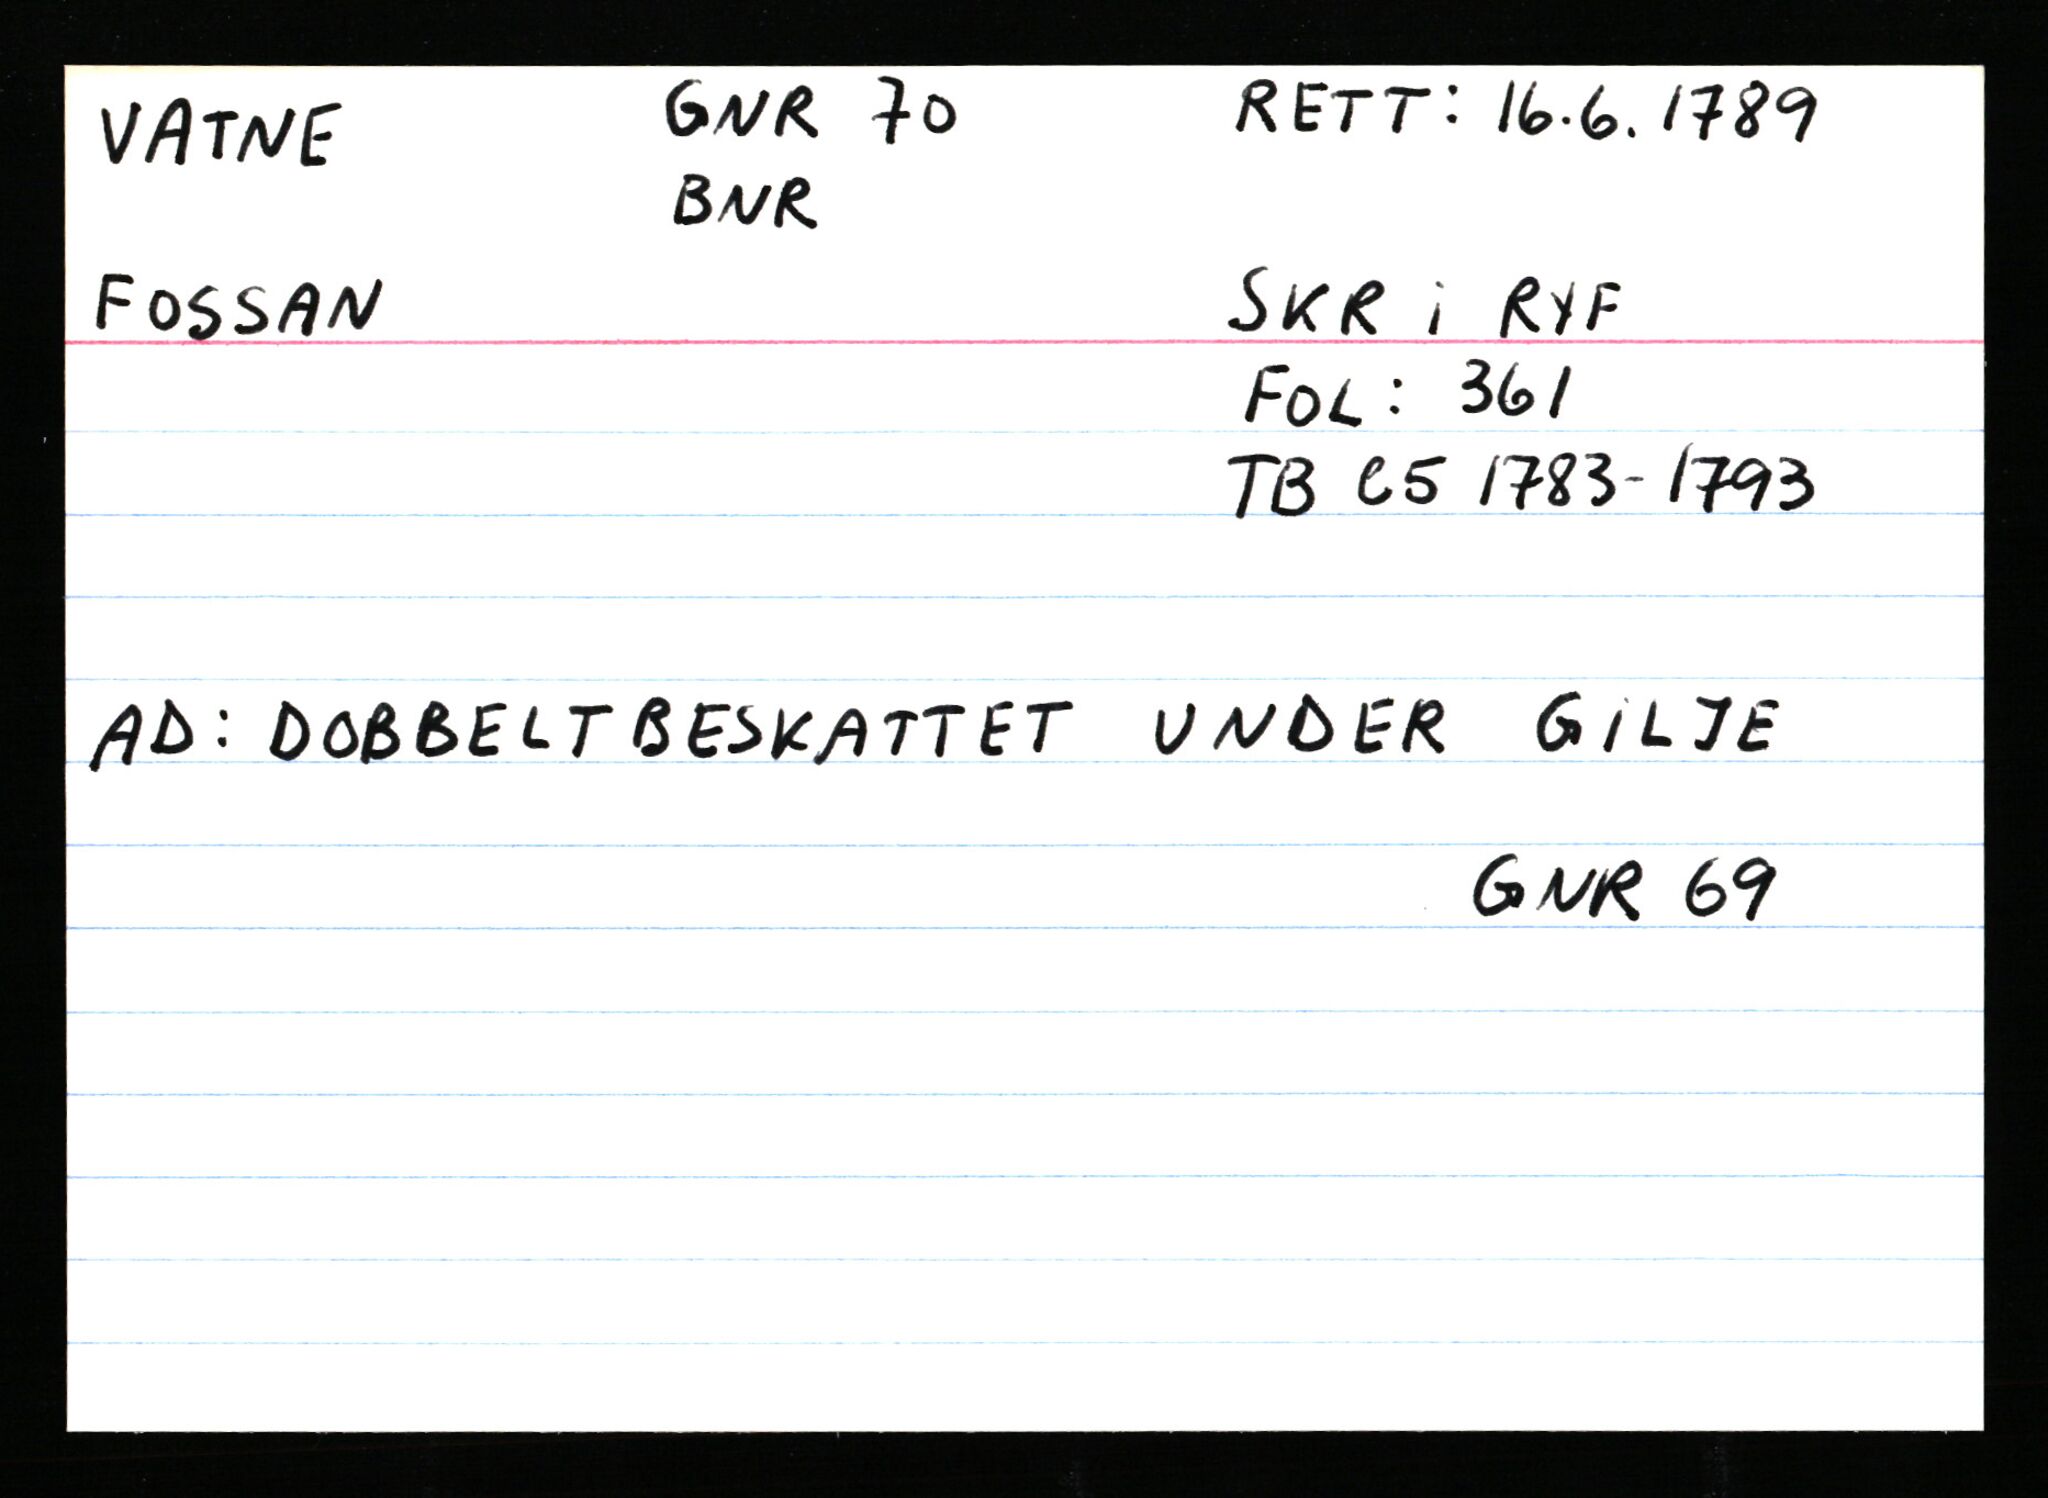 VATNE GNR 70 RETT: 16.6.1789
BNR
FOSSAN SKR i RYF
FOL: 361
TB C5 1783-1793
AD: DOBBELTBESKATTET UNDER GILJE
GNR 69